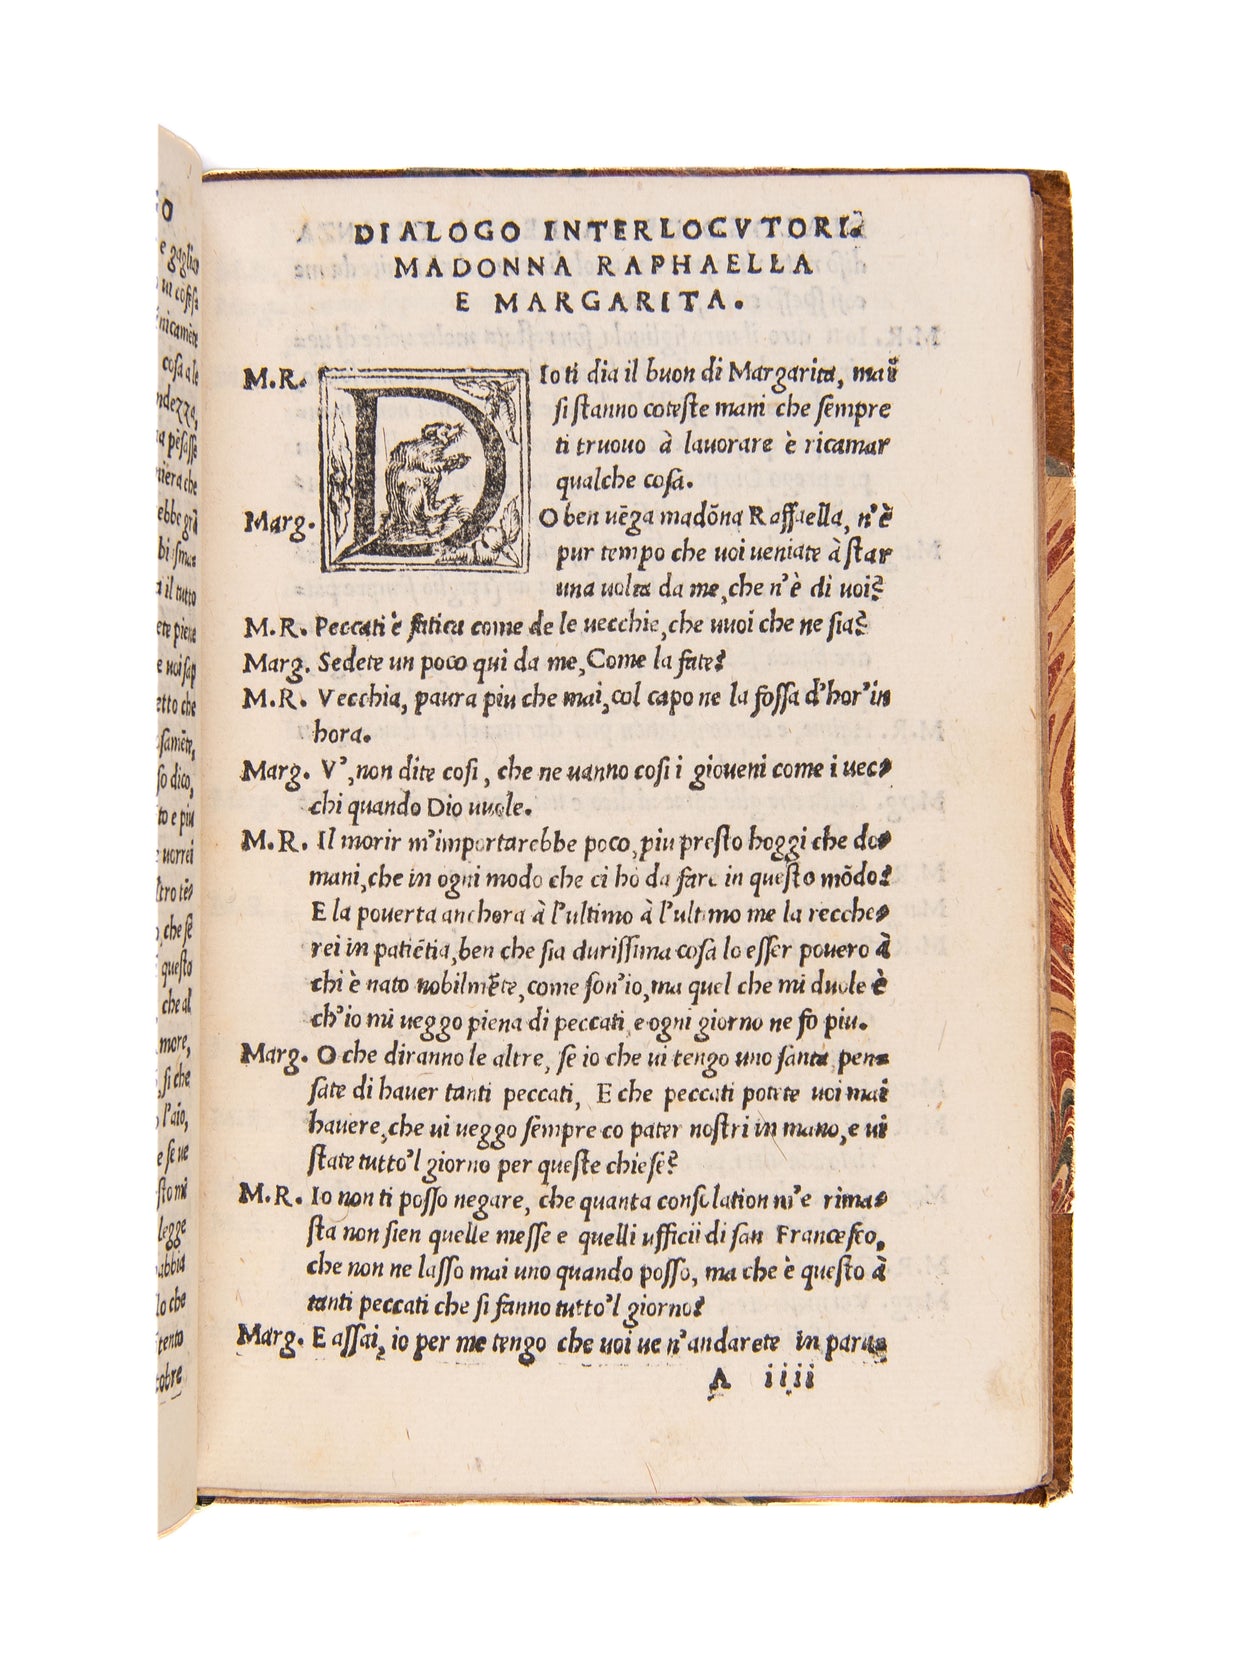 DIALOGO INTERLOCVTORI.
MADONNA RAPHAELLA
E MARGARITA.
M.R. DIo ti dia il buon di Margarita, mai
si stanno coteste mani che sempre
ti truovo à lauorare è ricamar
qualche cosa.
Marg. O ben uēga madōna Raffaella, n'è
pur tempo che uoi ueniate à star
una uolta da me, che n'è di uoi?
M.R. Peccati è fatica come de le uecchie, che uuoi che ne sia?
Marg. Sedete un poco qui da me, Come la fate?
M.R. Vecchia, paura piu che mai, col capo ne la fossa d'hor'in
hora.
Marg. V', non dite cosi, che ne uanno cosi i gioueni come i uec-
chi quando Dio uuole.
M.R. Il morir m'importarebbe poco, piu presto hoggi che do-
mani, che in ogni modo che ci ho da fare in questo mōdo?
E la pouerta anchora à l'ultimo à l'ultimo me la recche-
rei in patiētia, ben che sia durissima cosa lo esser pouero à
chi è nato nobilmēte, come son'io, ma quel che mi duole è
ch'io mi ueggo piena di peccati, e ogni giorno ne fo piu.
Marg. O che diranno le altre, se io che ui tengo uno santa pen-
sate di hauer tanti peccati, E che peccati potete uoi mai
hauere, che ui ueggo sempre co pater nostri in mano, e ui
state tutto'l giorno per queste chiese?
M.R. Io non ti posso negare, che quanta consolation m'e rima-
sta non sien quelle messe e quelli ufficii di san Francesco,
che non ne lasso mai uno quando posso, ma che è questo à
tanti peccati che si fanno tutto'l giorno?
Marg. E assai, io per me tengo che uoi ue n'andarete in para-
A iiii